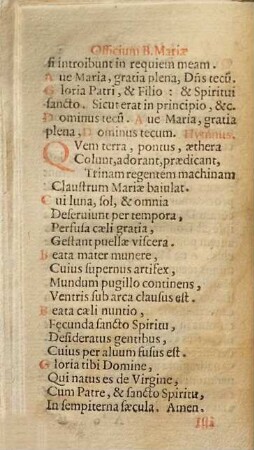 Officium B. Mariæ
ſi introibunt in requiem meam.
Aue Maria, gratia plena, Dñs tecũ.
Gloria Patri, & Filio : & Spiritui
ſancto. Sicut erat in principio, &c.
Dominus tecũ. Aue Maria, gratia
plena, Dominus tecum. Hymnus.
QVem terra, pontus, æthera
Colunt, adorant, prædicant,
Trinam regentem machinam
Clauſtrum Mariæ baiulat.
Cui luna, ſol, & omnia
Deſeruiunt per tempora,
Perfuſa cæli gratia,
Geſtant puellæ viſcera.
Beata mater munere,
Cuius ſupernus artifex,
Mundum pugillo continens,
Ventris ſub arca clauſus eſt.
Beata cæli nuntio,
Fęcunda ſancto Spiritu,
Deſideratus gentibus,
Cuius per aluum fuſus eſt.
Gloria tibi Domine,
Qui natus es de Virgine,
Cum Patre, & ſancto Spiritu,
In ſempiterna ſæcula. Amen.